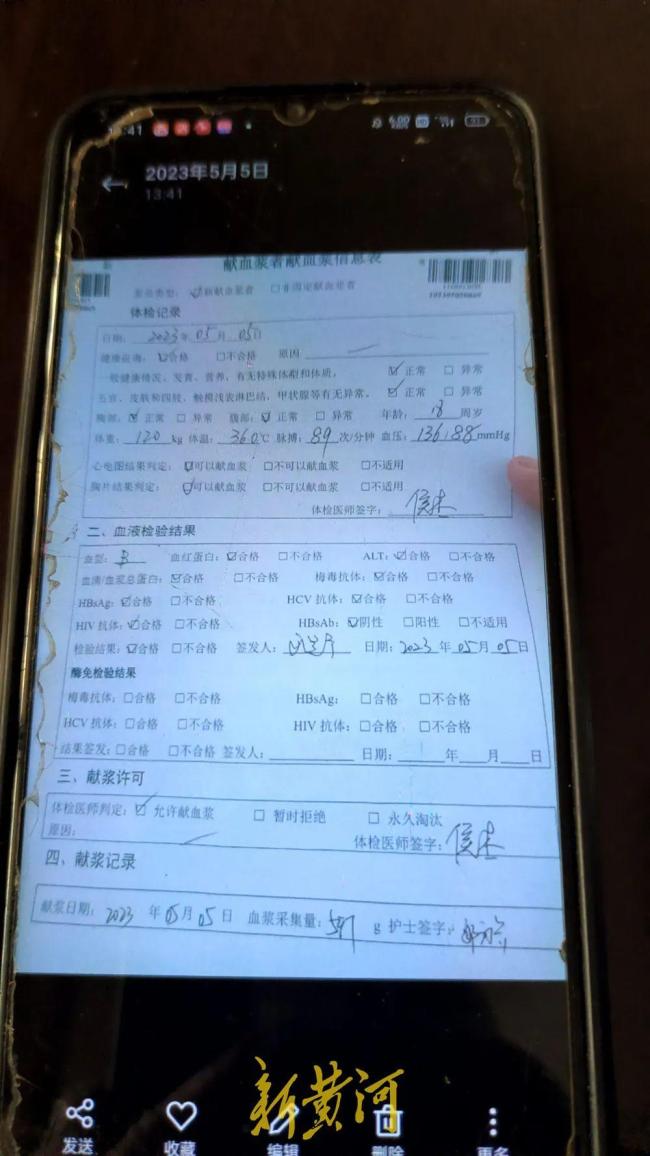 13:41
2023年5月5日
13:41
献血浆者献血浆信息表
体检记录
日期: 2023 年 05 月 05日
健康征询: ☑合格 □不合格 原因
一般健康情况、发育、营养、有无特殊体型和体质。 ☑ 正常 □ 异常
五官、皮肤和四肢、触摸浅表淋巴结、甲状腺等有无异常。 ☑ 正常 □ 异常
胸部: ☑ 正常 □ 异常 腹部: ☑ 正常 □ 异常 年龄: 18 周岁
体重: 120 kg 体温: 36.0℃ 脉搏: 89 次/分钟 血压: 136/88 mmHg
心电图结果判定: ☑可以献血浆 □不可以献血浆 □不适用
胸片结果判定: ☑可以献血浆 □不可以献血浆 □不适用
体检医师签字: 侯杰
二、血液检验结果
血型: B 血红蛋白: ☑合格 □不合格 ALT: ☑合格 □不合格
血清/血浆总蛋白: ☑合格 □不合格 梅毒抗体: ☑合格 □不合格
HBsAg: ☑合格 □不合格 HCV 抗体: ☑合格 □不合格
HIV 抗体: ☑合格 □不合格 HBsAb: ☑阴性 □阳性 □不适用
检验结果: ☑合格 □不合格 签发人: 日期: 2023 年 05 月 05 日
酶免检验结果
梅毒抗体: □合格 □不合格 HBsAg: □合格 □不合格
HCV 抗体: □合格 □不合格 HIV 抗体: □合格 □不合格
结果签发: □合格 □不合格 签发人: 日期: 年 月 日
三、献浆许可
体检医师判定: ☑ 允许献血浆 □ 暂时拒绝 □ 永久淘汰
原因: 体检医师签字: 侯杰
四、献浆记录
献浆日期: 2023 年 05 月 05 日 血浆采集量: g 护士签字:
新黄河
发送 收藏 编辑 删除 更多